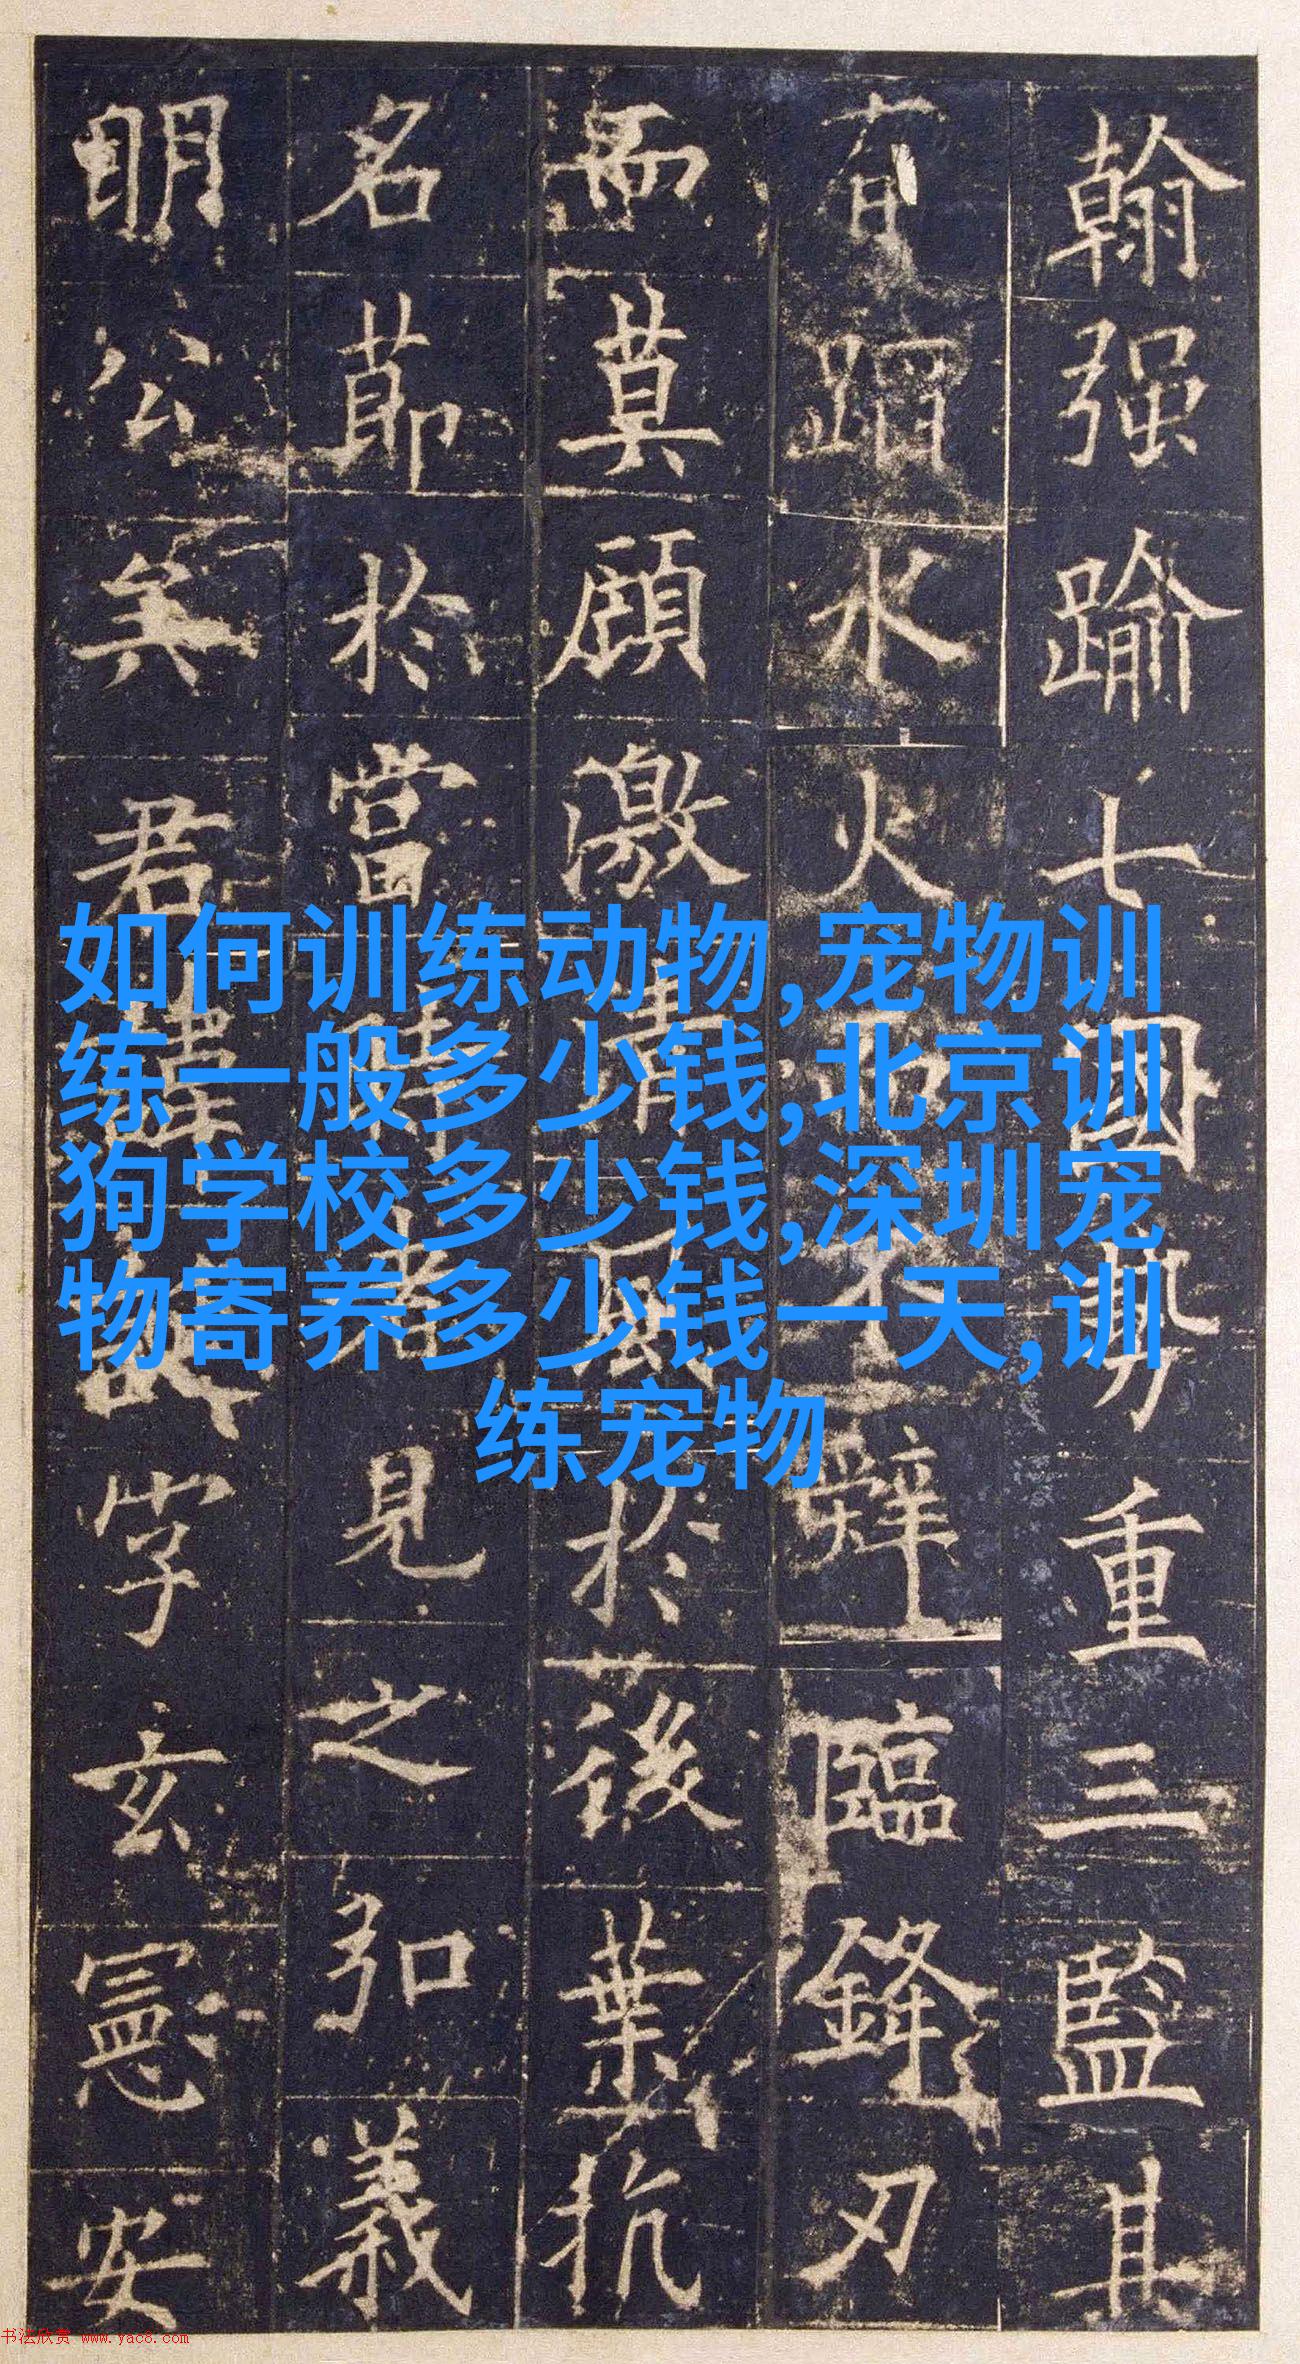 翰强踰七國勢重三監其
有蹈水火而不辭臨鋒刃
而莫顧激清風於後葉抗
名節於當時者見之弘義
明公矣君諱誕字玄憲安
如何训练动物,宠物训
练一般多少钱,北京训
狗学校多少钱,深圳宠
物寄养多少钱一天,训
练宠物
书法欣赏 www.yac8.com